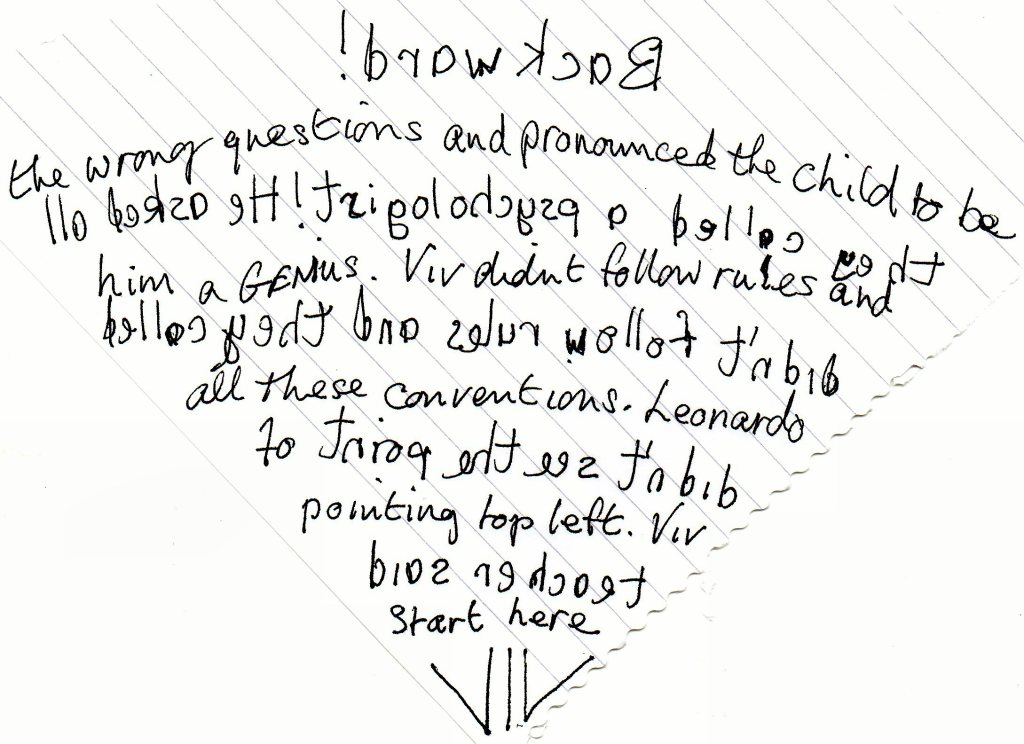 Start here
teacher said
pointing top left. Viv
didn't see the point of
all these conventions. Leonardo
didn't follow rules and they called
him a GENIUS. Viv didnt follow rules and
they called a psychologist! He asked all
the wrong questions and pronounced the child to be
Backward!